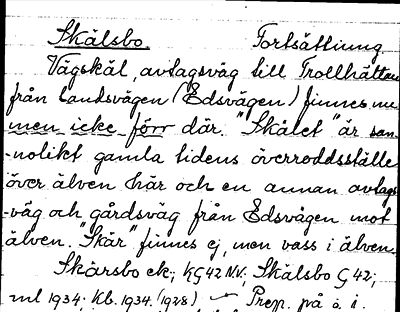 Skälsbo. Fortsättning
Vägskäl, avtagsväg till Trollhättan
från landsvägen (Edsvägen) finnes nu
men icke förr där. "Skälet" är san-
-nolikt gamla tidens överroddsställe
över älven här och en annan avtags-
-väg och gårdsväg från Edsvägen mot
älven. "Skär" finnes ej, men vass i älven.
Skärsbo ek; KG42 NV; Skälsbo G42;
ml 1934; Kb. 1934. (1928) Prep. på ö. i.